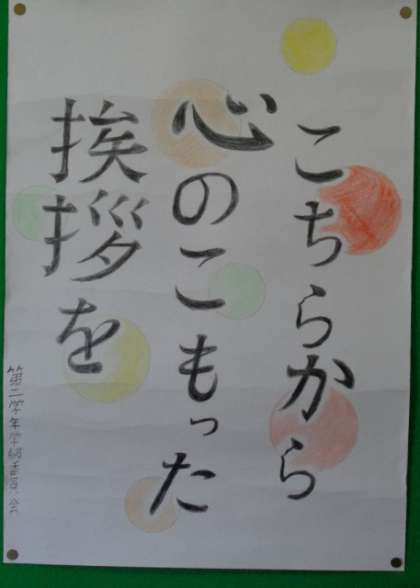 こちらから
心のこもった
挨拶を
第二学年学級委員会